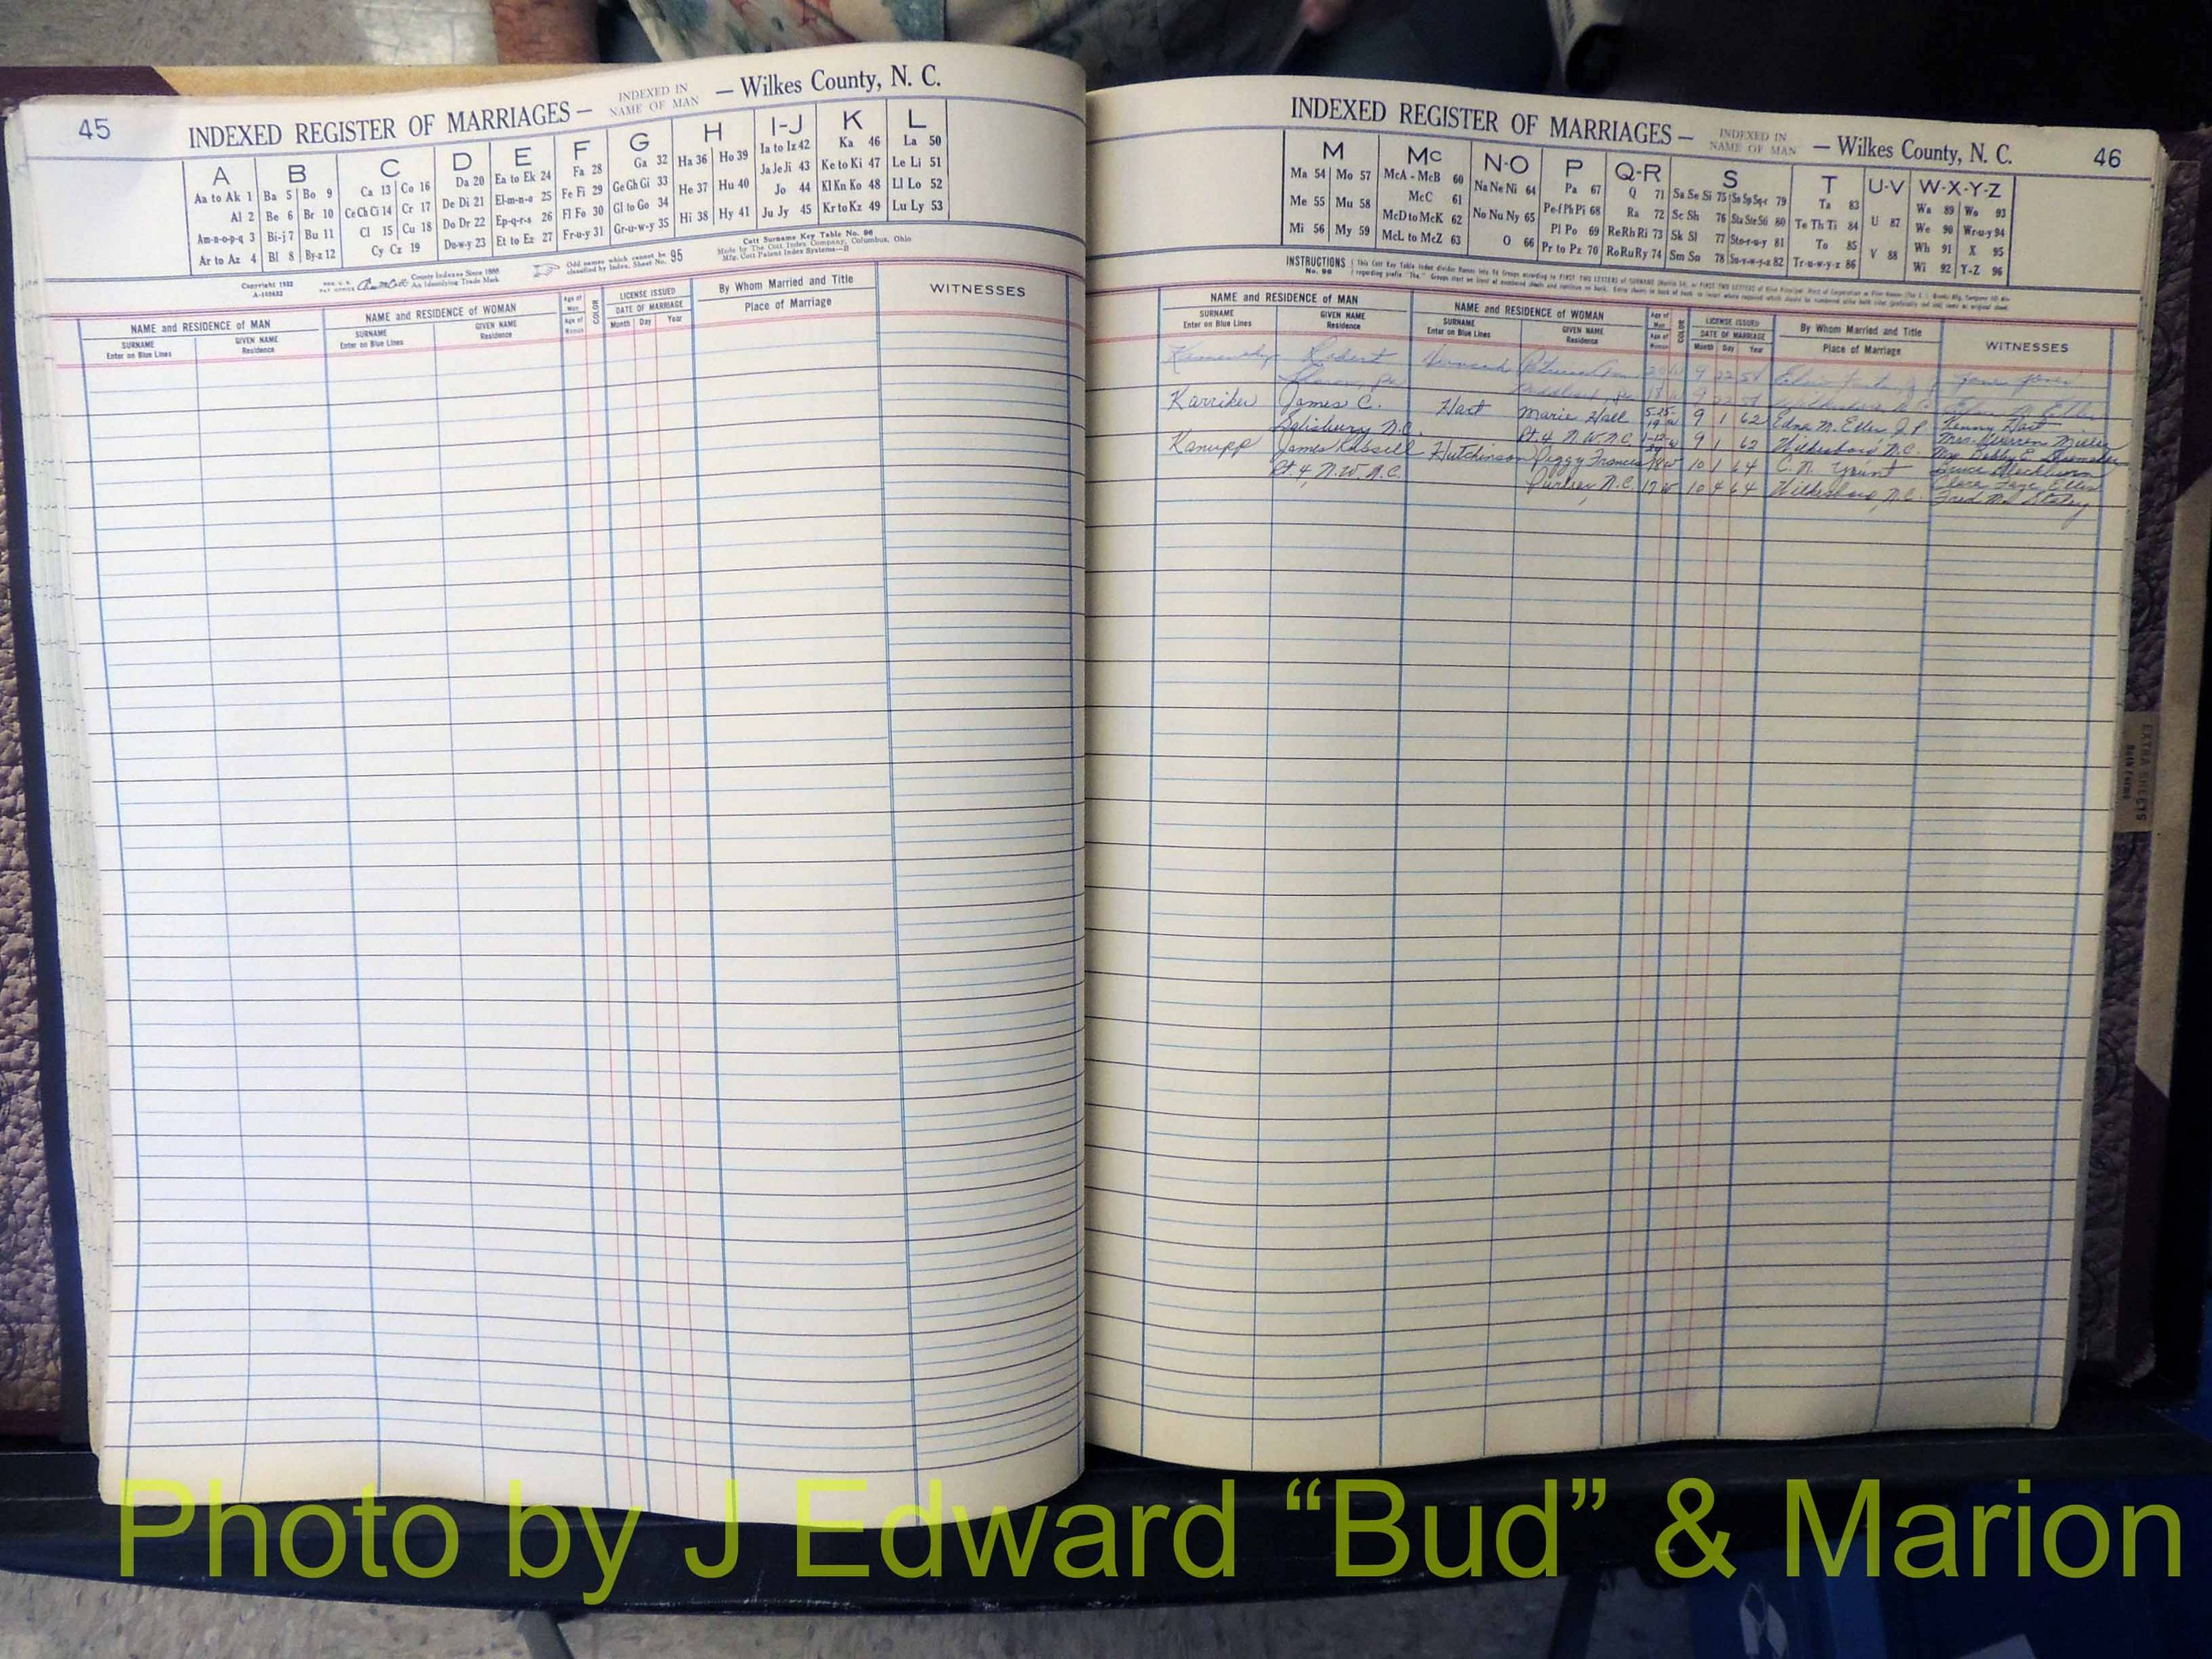 45
INDEXED REGISTER OF MARRIAGES — INDEXED IN NAME OF MAN — Wilkes County, N. C.
A B C D E F G H I-J K L
Aa to Ak 1 Ba 5 Bo 9 Ca 13 Co 16 Da 20 Ea to Ek 24 Fa 28 Ga 32 Ha 36 Ho 39 Ia to Iz 42 Ka 46 La 50
Al 2 Be 6 Br 10 Ce Ch Ci 14 Cr 17 De Di 21 El-m-n-o 25 Fe Fi 29 Ge Gh Gi 33 He 37 Hu 40 Ja Je Ji 43 Ke to Ki 47 Le Li 51
Am-n-o-p-q 3 Bi-j 7 Bu 11 Cl 15 Cu 18 Do Dr 22 Ep-q-r-s 26 Fl Fo 30 Gl to Go 34 Hi 38 Hy 41 Jo 44 Kl Kn Ko 48 Ll Lo 52
Ar to Az 4 Bl 8 By-z 12 Cy Cz 19 Du-w-y 23 Et to Ez 27 Fr-u-y 31 Gr-u-w-y 35 Ju Jy 45 Kr to Kz 49 Lu Ly 53
Copyright 1932
County Indexes Since 1888
An Identifying Trade Mark
Odd names which cannot be classified by Index, Sheet No. 95
Cott Surname Key Table No. 96
Made by The Cott Index Company, Columbus, Ohio
Mfg. Cott Patent Index Systems—B
NAME and RESIDENCE OF MAN NAME and RESIDENCE OF WOMAN Age of Man COLOR LICENSE ISSUED By Whom Married and Title WITNESSES
SURNAME Enter on Blue Lines GIVEN NAME Residence SURNAME Enter on Blue Lines GIVEN NAME Residence Age of Woman DATE OF MARRIAGE Month Day Year Place of Marriage
INDEXED REGISTER OF MARRIAGES — INDEXED IN NAME OF MAN — Wilkes County, N. C.
46
M Mc N-O P Q-R S T U-V W-X-Y-Z
Ma 54 Mo 57 McA - McB 60 Na Ne Ni 64 Pa 67 Q 71 Sa Se Si 75 So Sp Sq-r 79 Ta 83 U 87 Wa 89 Wo 93
Me 55 Mu 58 McC 61 No Nu Ny 65 Pe-f Ph Pi 68 Ra 72 Sc Sh 76 Sta Ste Sti 80 Te Th Ti 84 V 88 We 90 Wr-u-y 94
Mi 56 My 59 McD to McK 62 O 66 Pl Po 69 Re Rh Ri 73 Sk Sl 77 Sto-r-u-y 81 To 85 Wh 91 X 95
McL to McZ 63 Pr to Pz 70 Ro Ru Ry 74 Sm Sn 78 Su-v-w-y-z 82 Tr-u-w-y-z 86 Wi 92 Y-Z 96
INSTRUCTIONS No. 96
NAME and RESIDENCE OF MAN NAME and RESIDENCE OF WOMAN Age of Man COLOR LICENSE ISSUED By Whom Married and Title WITNESSES
SURNAME Enter on Blue Lines GIVEN NAME Residence SURNAME Enter on Blue Lines GIVEN NAME Residence Age of Woman DATE OF MARRIAGE Month Day Year Place of Marriage
Robert 9 22
Karriker James C. Hart Marie Hall 9 1 62 Edna M. Eller J.P. Kenny Hart
Salisbury N.C. Rt. 4 N.W.N.C. 9 1 62 Wilkesboro, N.C. Mrs. Warren Miller
Kanupp James Russell Hutchinson Peggy Frances 18 W 10 1 64 C. N. Yount Bruce Blackburn
Rt. 4, N.W.N.C. Purlear N.C. 17 W 10 4 64 Wilkesboro, N.C. Fred M. Staley
EXTRA SHEETS
Photo by J Edward “Bud” & Marion